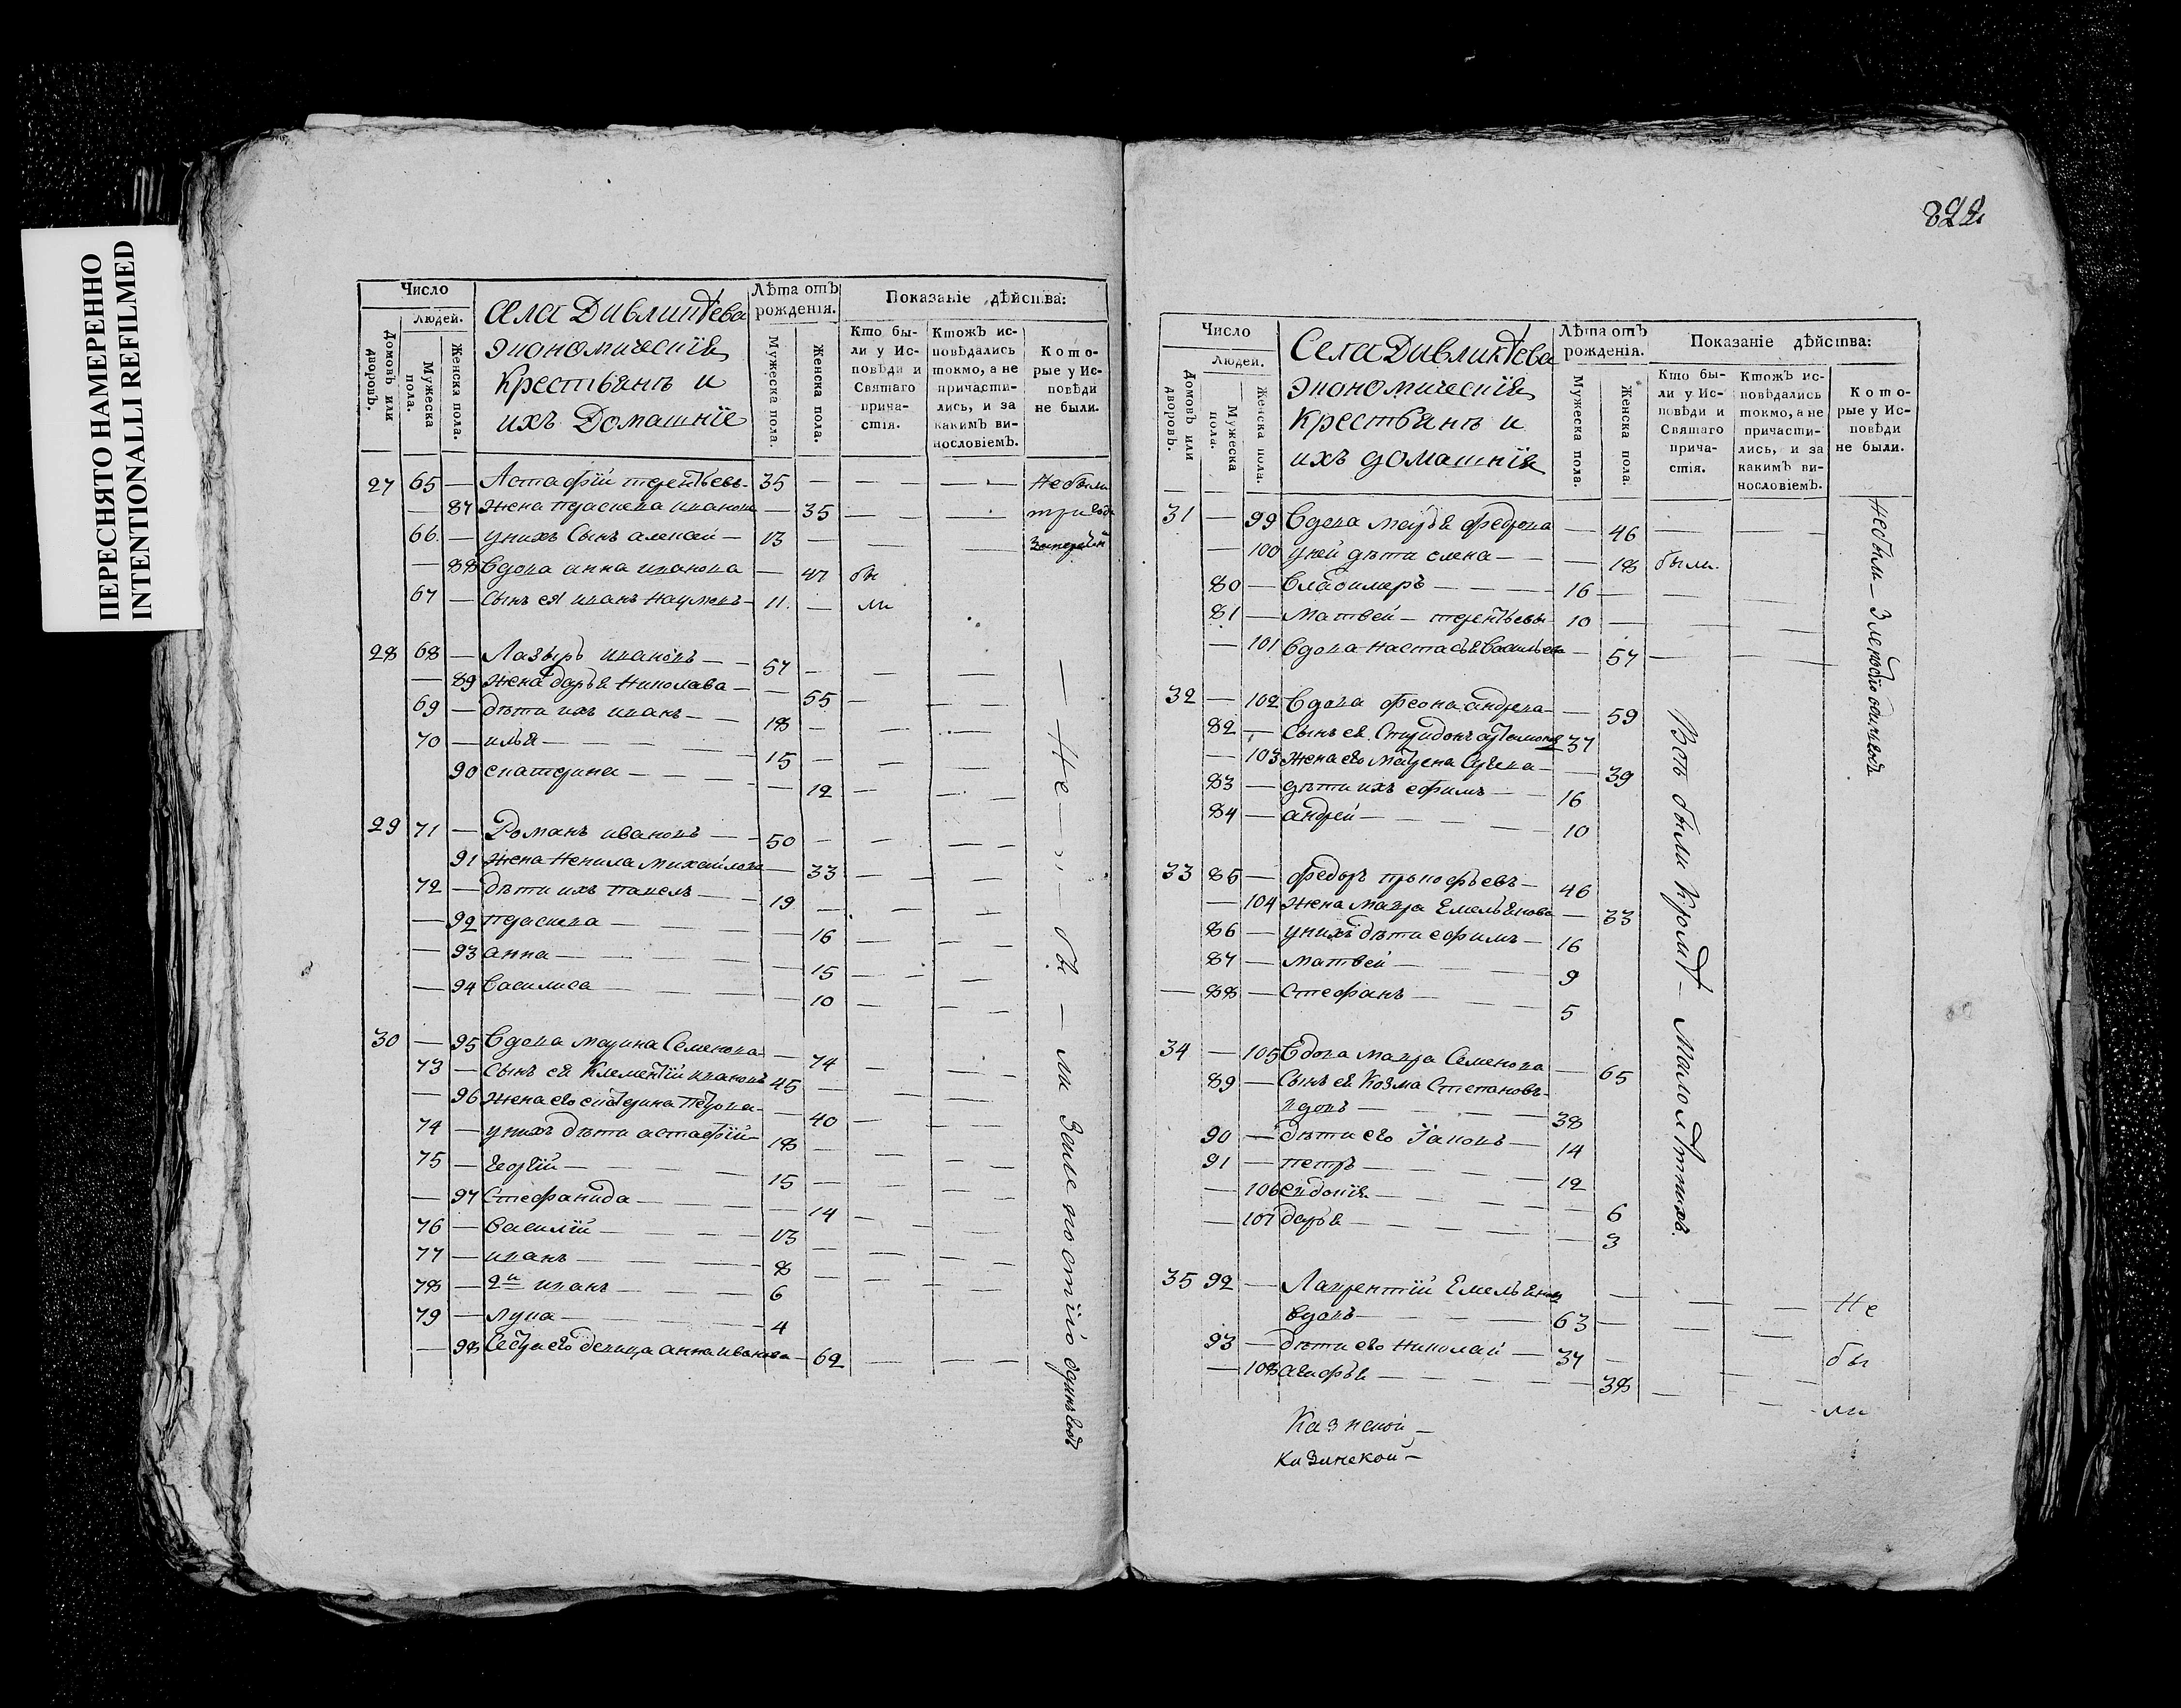 ПЕРЕСНЯТО НАМЕРЕННО
INTENTIONALLI REFILMED
Число
Людей.
Домовъ или дворовъ.
Мужеска пола.
Женска пола.
Села
Экономическія
Крестьянъ и
ихъ Домашніе
Лѣта отъ рожденія.
Мужеска пола.
Женска пола.
Показаніе дѣйства:
Кто были у Исповѣди и Святаго причастія.
Ктожъ исповѣдались токмо, а не причастились, и за какимъ винословіемъ.
Которые у Исповѣди не были.
27 65 — Астафій терентьевъ 35 — — — Небыли
— 87 жена праскева иванова — 35 — — три года
66 — унихъ Сынъ алексей — 13 — — —
— 88 Вдова анна иванова — 47 бы
67 — сынъ ея иванъ Наумовъ — 11 — ли
28 68 — Лазырь ивановъ — 57 — — —
— 89 жена дарья Николаева — 55 — —
69 — дѣти ихъ иванъ — 18 — — —
70 — илья — 15 — — —
90 екатерина — 12 — —
29 71 — Романъ ивановъ — 50 — — —
91 жена Ненила михайлова — 33 — —
72 — дѣти ихъ павелъ — 19 — — —
— 92 праскева — 16 — —
— 93 анна — 15 — —
— 94 Василиса — 10 — —
30 — 95 Вдова марина Семенова — 74 — —
73 — сынъ ея Клементій ивановъ 45 — — —
— 96 жена его екатерина Петрова — 40 — —
74 — унихъ дѣти астафій — 18 — — —
75 — Георгій — 15 — — —
— 97 Стефанида — 14 — —
76 — Василій — 13 — — —
77 — иванъ — 8 — — —
78 — 2й иванъ — 6
79 — лука — 4
— 98 Сестра его девица анна иванова — 62 — —
— Не — бы — ли одинъ годъ
822
Число
Людей.
Домовъ или дворовъ.
Мужеска пола.
Женска пола.
Села
Экономическія
Крестьянъ и
ихъ домашнія
Лѣта отъ рожденія.
Мужеска пола.
Женска пола.
Показаніе дѣйства:
Кто были у Исповѣди и Святаго причастія.
Ктожъ исповѣдались токмо, а не причастились, и за какимъ винословіемъ.
Которые у Исповѣди не были.
31 — 99 Вдова марья федорова — 46 — —
— 100 уней дѣти елена — 18 были.
80 — Владимеръ — 16 — — —
81 — Матвей — терентьевы 10 — — —
— 101 Вдова настасья Васильева — 57 — —
32 — 102 Вдова феона андреева — 59
82 — Сынъ ея Спиридонъ артамоновъ 37
— 103 жена его матрена Сергеева — 39
83 — дѣти ихъ ефимъ — 16
84 — андрей — 10
33 85 — Федоръ прокофьевъ — 46
— 104 жена мавра Емельянова — 33
86 — унихъ дѣти ефимъ — 16
87 — матвей — 9
— 88 — Стефанъ — 5
34 — 105 Вдова мавра Семенова — 65
89 — Сынъ ея Козма Степановъ —
вдовъ — 38
90 — дѣти его Іаковъ — 14
91 — петръ — 12
— 106 евдокія — 6
— 107 дарья — 3
35 92 — Лаврентій Емельяновъ — — — Не
вдовъ — 63 — — —
93 — дѣти его николай — 37 — бы
— 108 агафья — 38 — — ли
Небыли
Всѣ были Кромѣ — Малолѣтнихъ.
Казиской —
Казинской —